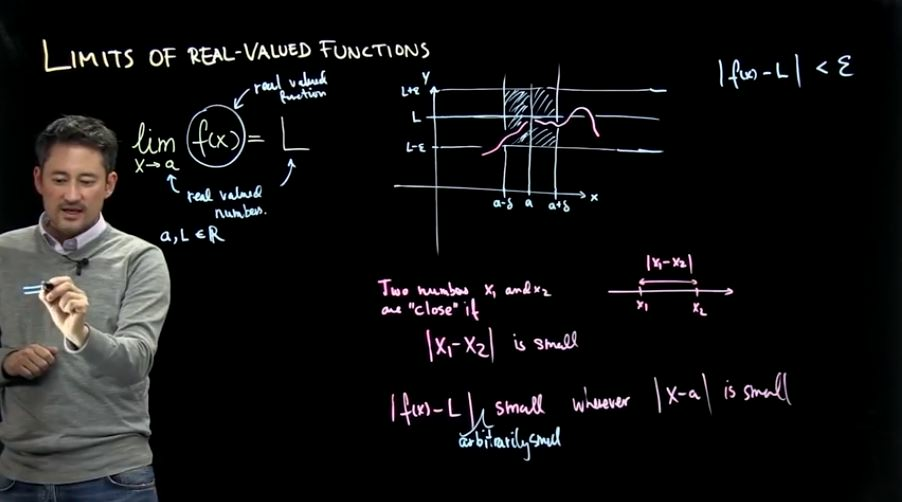 LIMITS OF REAL-VALUED FUNCTIONS
real valued
function
lim f(x) = L
x→a
real valued
numbers.
a, L ∈ ℝ
y
L+ε
L
L-ε
a-δ a a+δ x
|f(x)-L| < ε
Two numbers x₁ and x₂
are "close" if
|x₁-x₂| is small
|x₁-x₂|
x₁ x₂
|f(x)-L| small whenever |x-a| is small
arbitrarily small
=